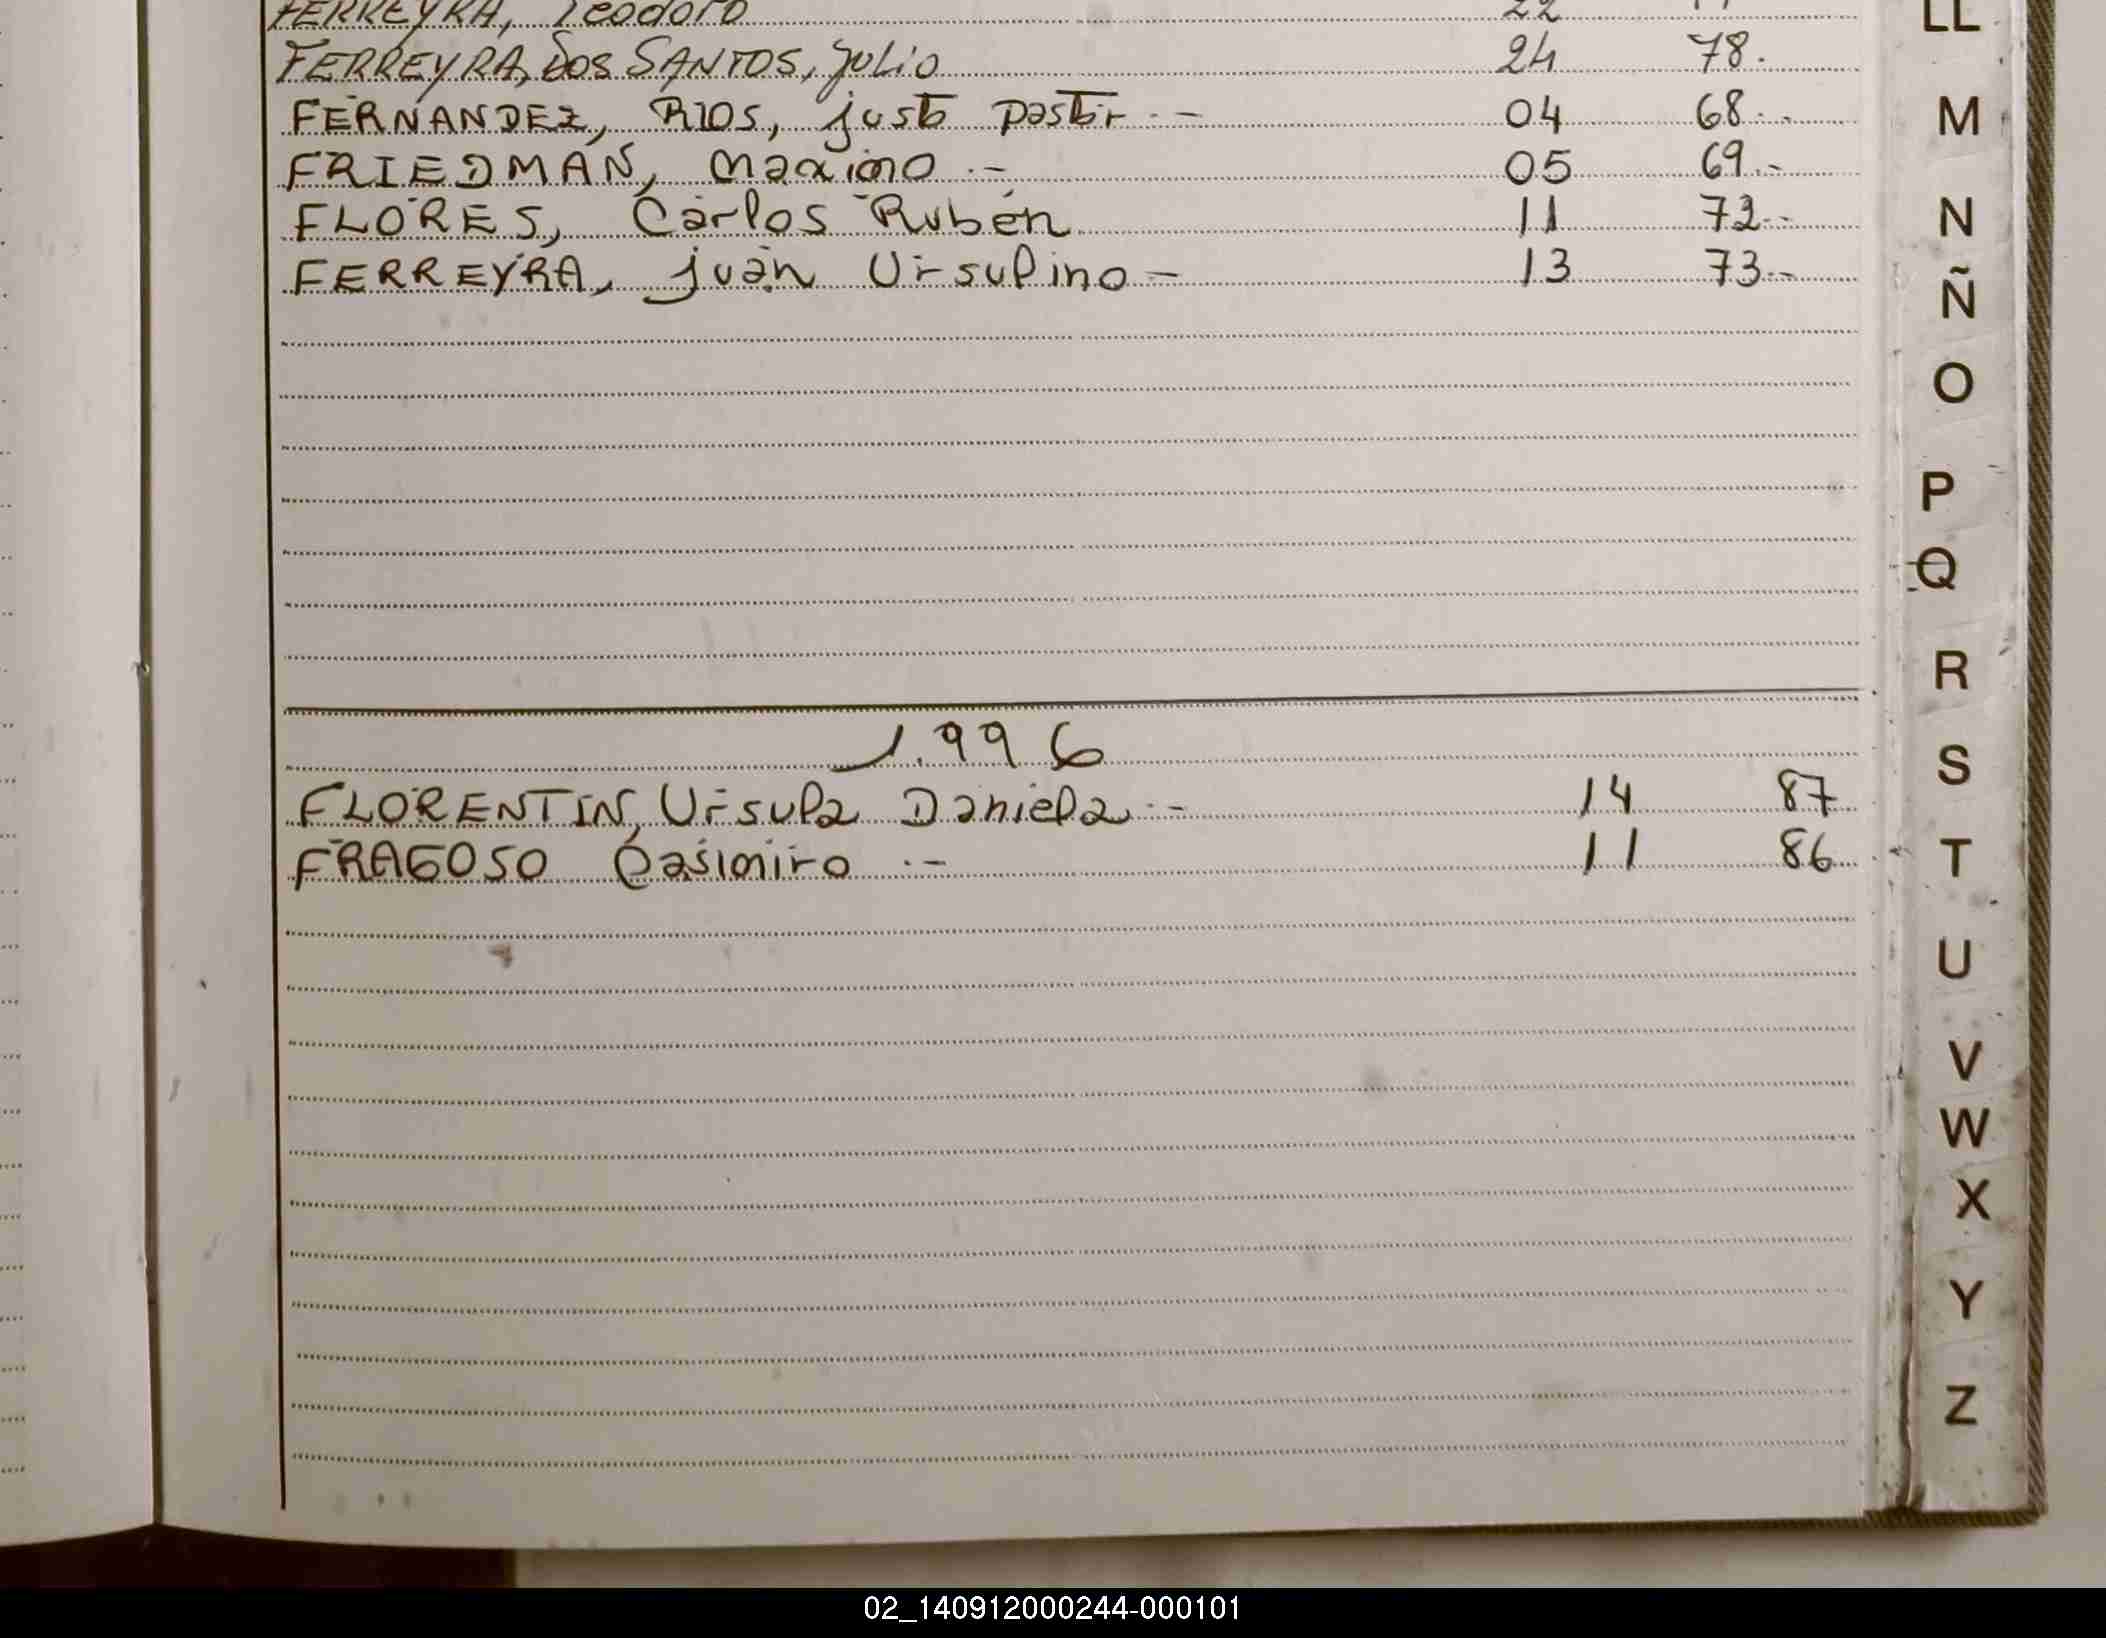 FERREYRA, Teodoro 22
FERREYRA, DOS SANTOS, Julio 24 78.
FERNANDEZ, RIOS, justo pastor .- 04 68.-
FRIEDMAN, Maximo .- 05 69.-
FLORES, Carlos Rubén 11 72.-
FERREYRA, juan Ursulino - 13 73.-
1.996
FLORENTIN, Ursula Daniela .- 14 87
FRAGOSO Casimiro .- 11 86
LL
M
N
Ñ
O
P
Q
R
S
T
U
V
W
X
Y
Z
02_140912000244-000101